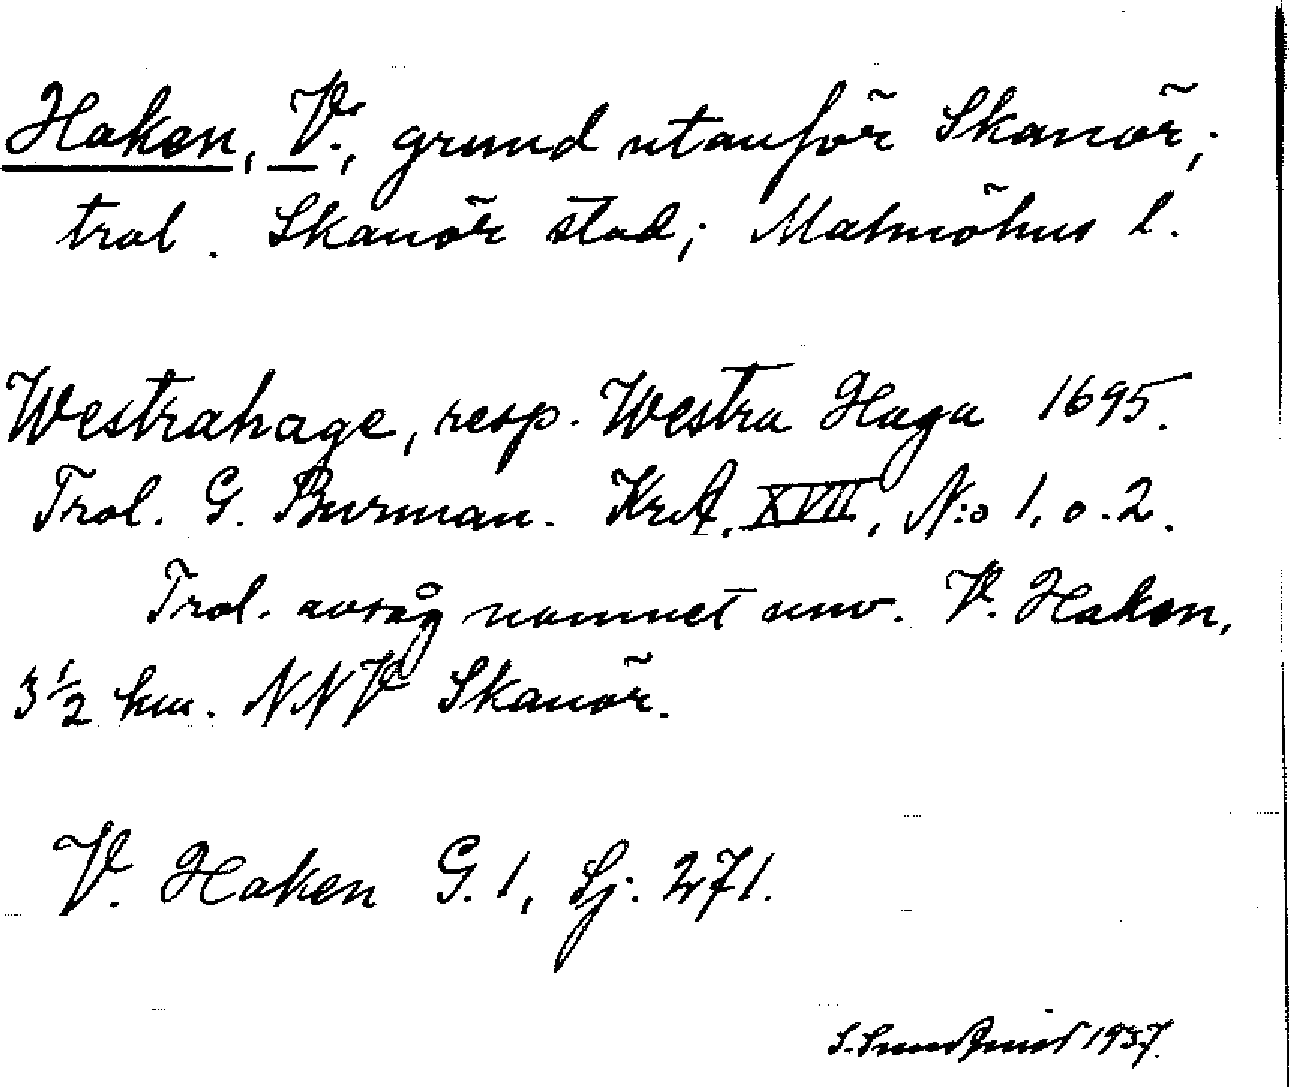 Haken, V., grund utanför Skanör;
trol. Skanör stad; Malmöhus l.
Westrahage, resp. Westra Haga 1695.
Trol. G. Burman. KrA, XVII, N:o 1, o. 2.
Trol. avsåg namnet nuv. V. Haken,
3 1/2 km. NNV Skanör.
V. Haken G. 1, Sj. 271.
S. 1937.